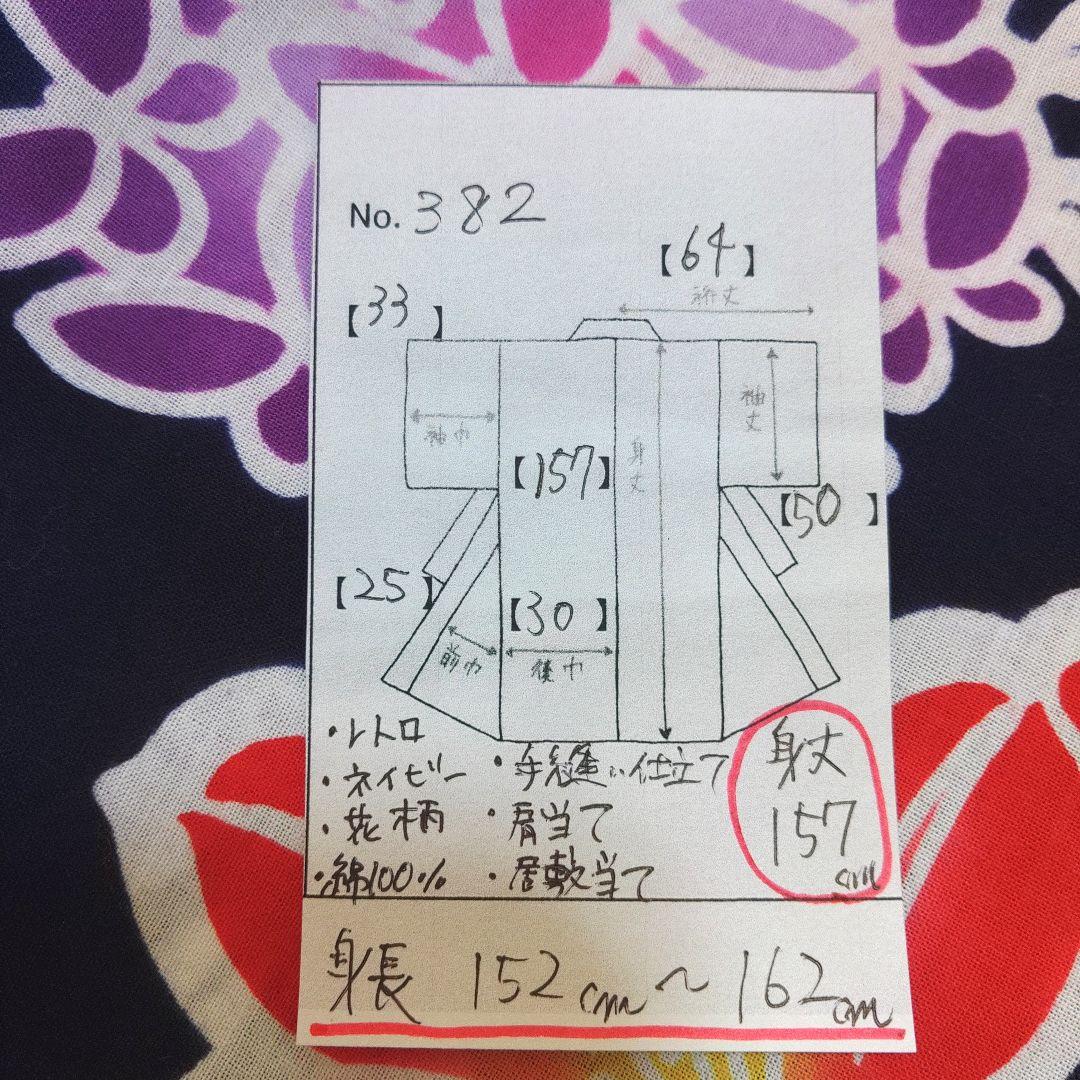 No. 382
【64】
裄丈
【33】
袖巾
袖丈
【157】
身丈
【50】
【25】
【30】
前巾
後巾
・レトロ
・ネイビー
・花柄
・綿100%
・手縫い仕立て
・肩当て
・居敷当て
身丈
157
cm
身長 152cm~162cm